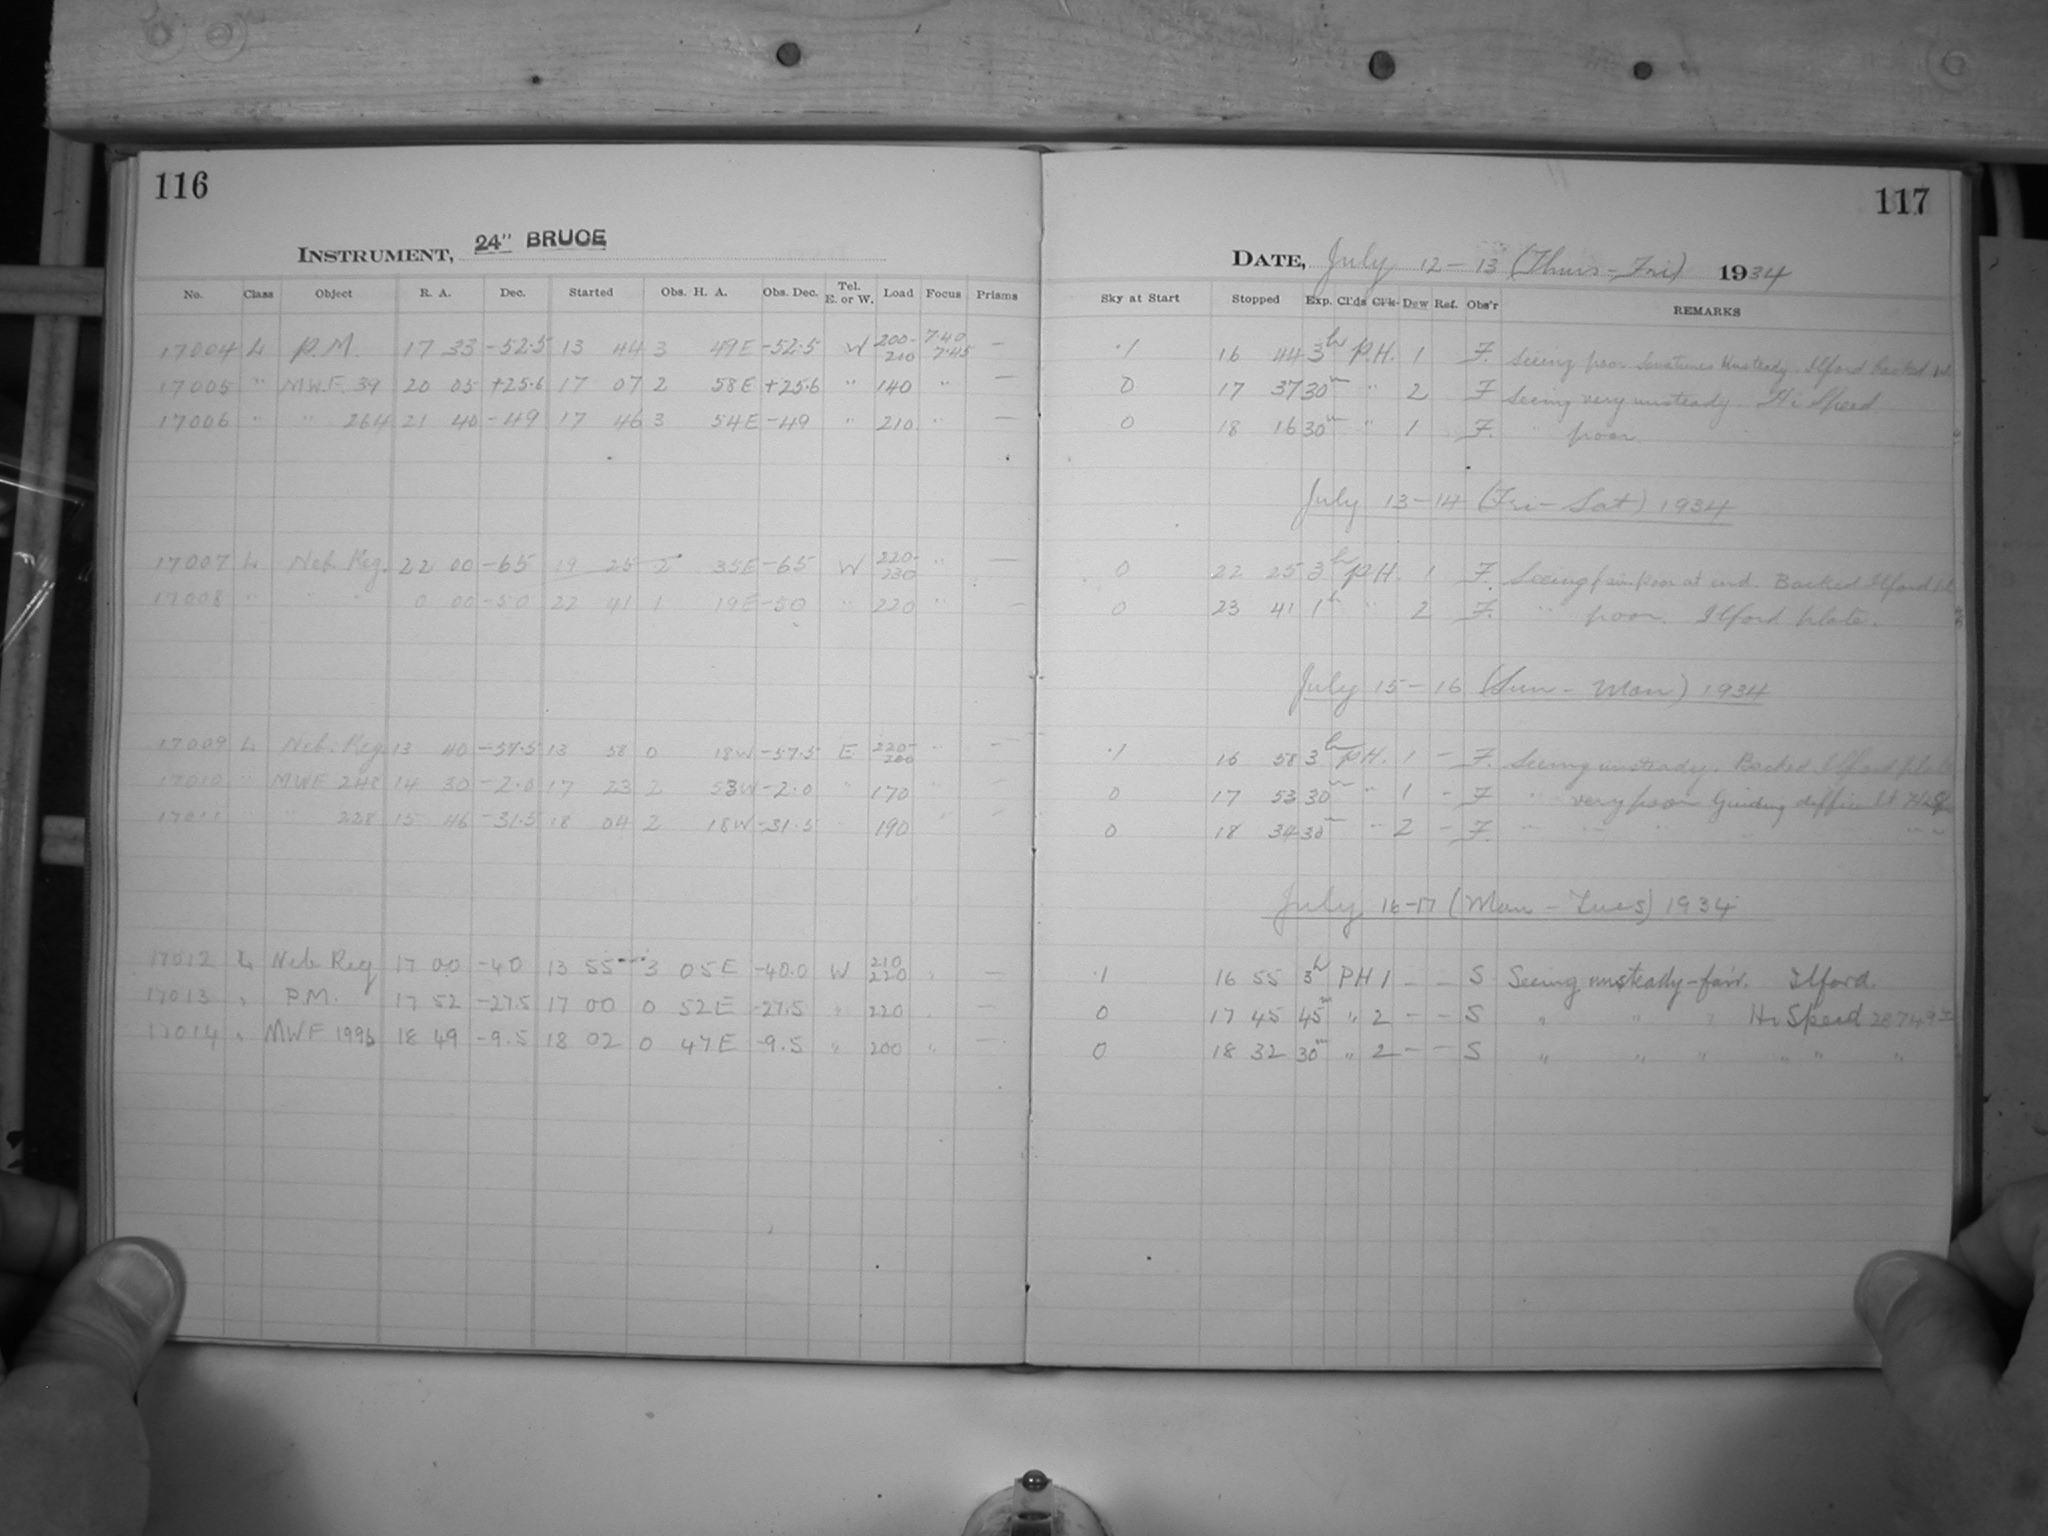 116
INSTRUMENT, 24" BRUCE
No. Class Object R. A. Dec. Started Obs. H. A. Obs. Dec. Tel. E. or W. Load Focus Prisms
17004 L P.M. 17 33 -52.5 13 44 3 49E -52.5 W 200-210 7.40 7.45 —
17005 " M.W.F. 39 20 05 +25.6 17 07 2 58E +25.6 " 140 " —
17006 " " 264 21 40 -49 17 46 3 54E -49 " 210 " —
17007 L Neb. Reg. 22 00 -65 19 25 2 35E -65 W 220-230 " —
17008 " " " 0 00 -50 22 41 1 19E -50 " 220 " —
17009 L Neb. Reg. 13 40 -57.5 13 58 0 18W -57.5 E 220-200 " —
17010 " MWF 248 14 30 -2.0 17 23 2 53W -2.0 " 170 " —
17011 " " 228 15 46 -31.5 18 04 2 18W -31.5 " 190 " —
17012 L Neb Reg 17 00 -40 13 55 3 05E -40.0 W 210 220 " —
17013 " P.M. 17 52 -27.5 17 00 0 52E -27.5 " 220 " —
17014 " MWF 199b 18 49 -9.5 18 02 0 47E -9.5 " 200 " —
117
DATE, July 12-13 (Thurs-Fri) 1934
Sky at Start Stopped Exp. Cl'ds Cl'k Dew Ref. Obs'r REMARKS
.1 16 44 3h P.H. 1 F. Seeing poor Sometimes Unsteady. Ilford backed
0 17 37 30m " 2 F Seeing very unsteady. Hi Speed
0 18 16 30m " 1 F. " poor
July 13-14 (Fri-Sat) 1934
0 22 25 3h P.H. 1 F. Seeing fair. poor at end. Backed Ilford
0 23 41 1h " 2 F. " poor. Ilford plate.
July 15-16 (Sun-Mon) 1934
.1 16 58 3h P.H. 1 - F. Seeing unsteady. Backed Ilford plate
0 17 53 30m " 1 - F " very poor Guiding difficult
0 18 34 30m " 2 - F. " " " "
July 16-17 (Mon-Tues) 1934
.1 16 55 3h PH 1 - - S Seeing unsteady-fair. Ilford.
0 17 45 45m " 2 - - S " " " Hi Speed 28749
0 18 32 30m " 2 - - S " " " " " "